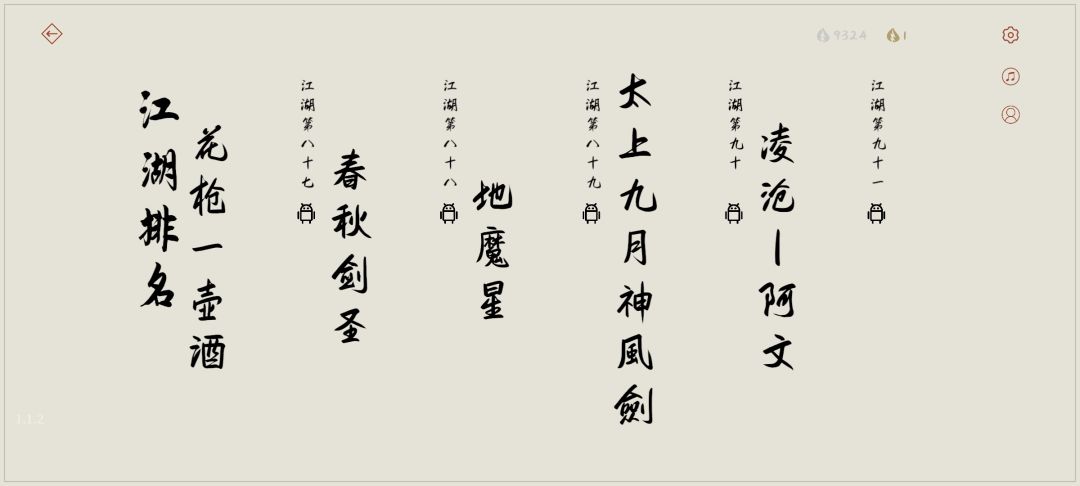 9324
1
江湖排名
花枪一壶酒
江湖第八十七
春秋剑圣
江湖第八十八
地魔星
江湖第八十九
太上九月神風劍
江湖第九十
凌沧丨阿文
江湖第九十一
1.1.2